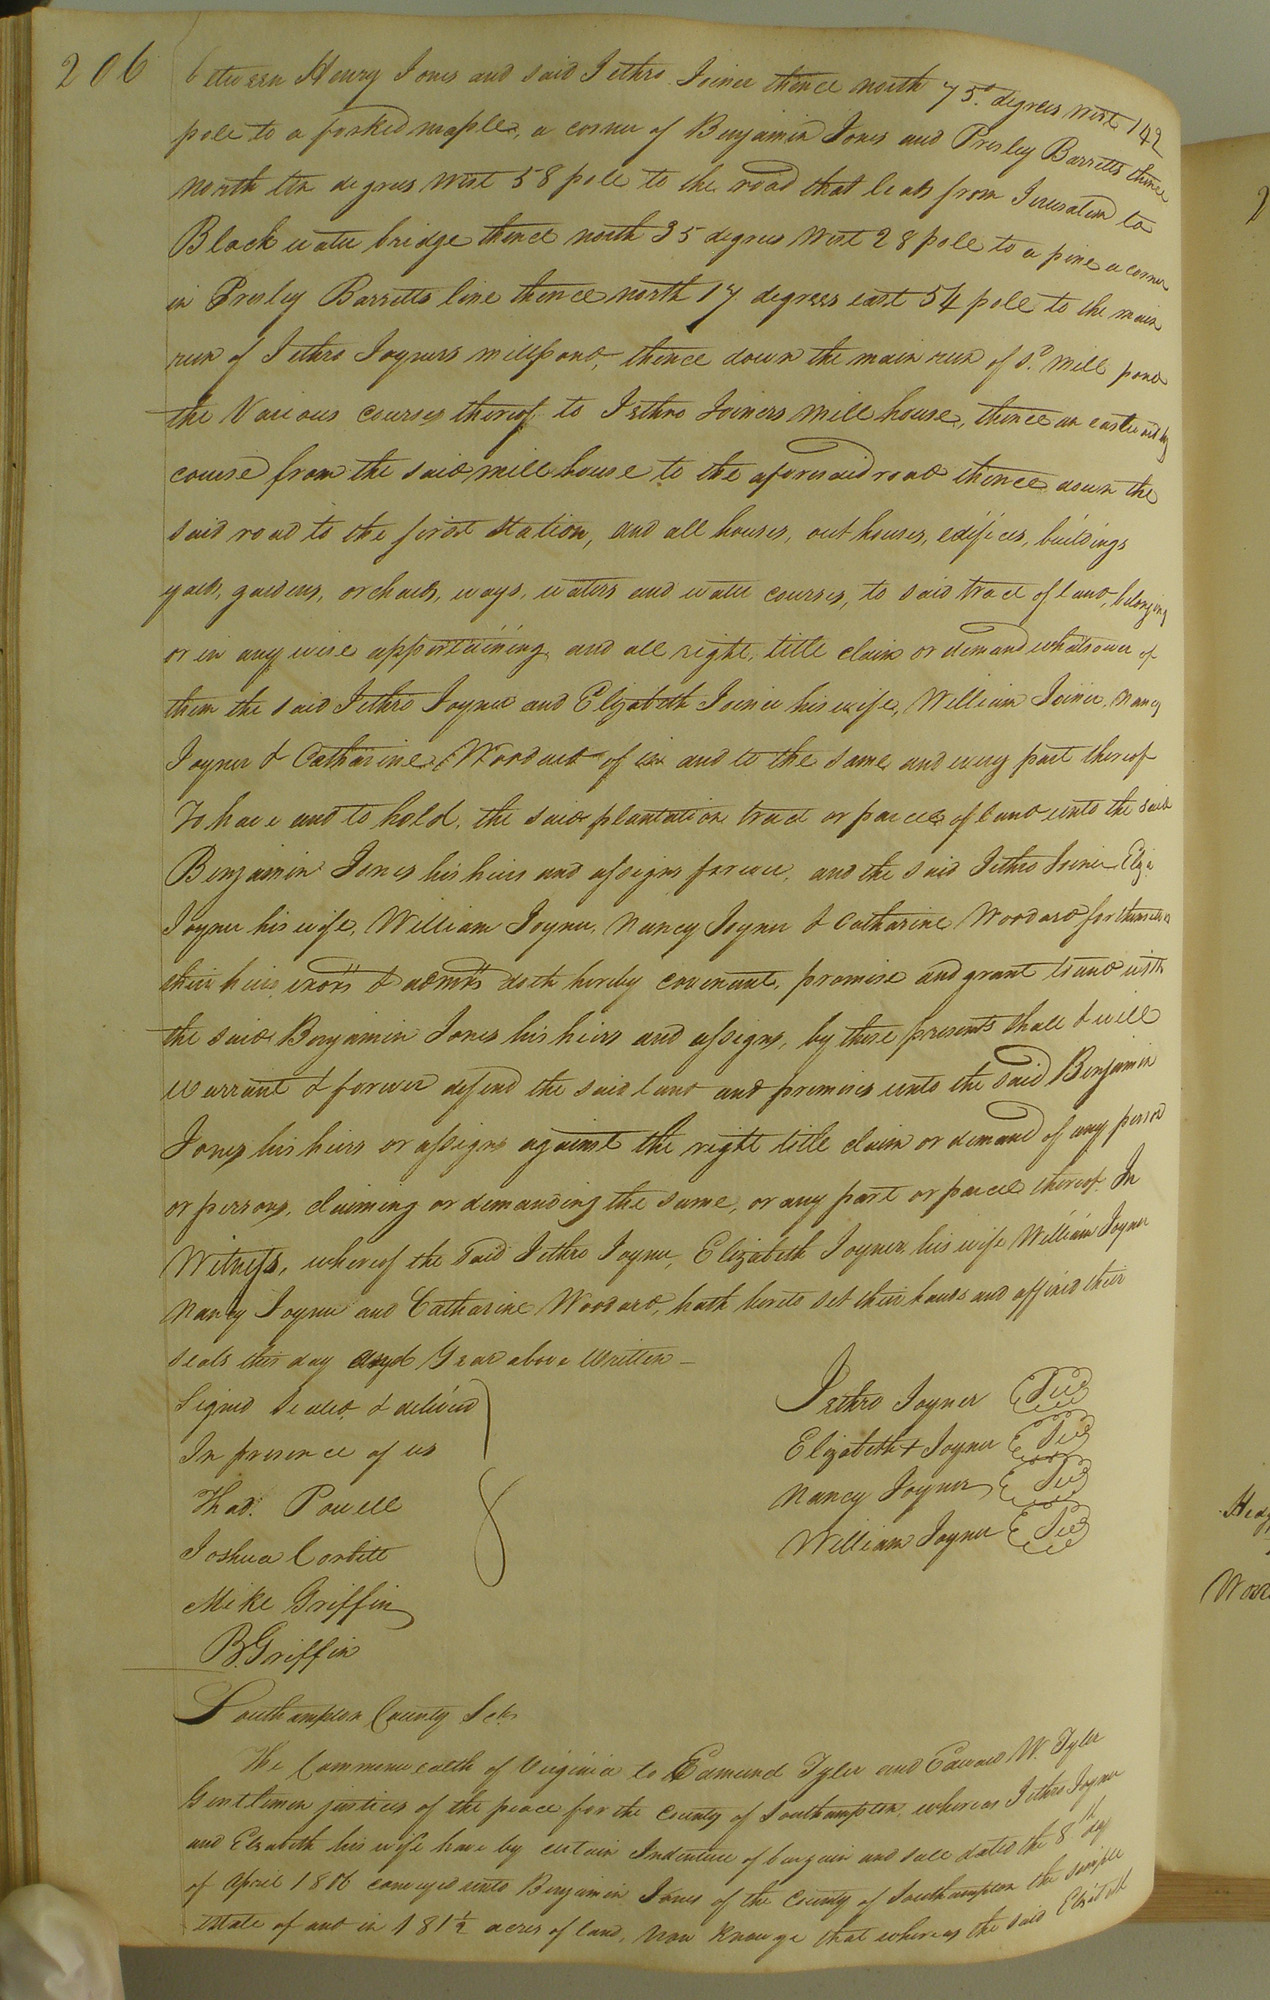 206
between Henry Jones and said Jethro Joiner thence north 75 degrees west 142
pole to a forked maple, a corner of Benjamin Jones and Presley Barretts thence
North ten degrees West 58 pole to the road that leads from Jerusalem to
Black water bridge thence north 35 degrees West 28 pole to a pine a corner
in Presley Barretts line thence north 17 degrees east 54 pole to the main
run of Jethro Joyners millpond, thence down the main run of sd. mill pond
the Various courses thereof to Jethro Joiners mill house, thence an easterardly
course from the said mill house to the aforesaid road thence down the
said road to the first Station, and all houses, out houses, edifices, buildings
yards, gardens, orchards, ways, waters and water courses, to said tract of land, belonging
or in any wise appertaining and all right, title claim or demand whatsoever of
them the said Jethro Joyner and Elizabeth Joiner his wife, William Joiner, Nancy
Joyner & Catharine Woodard of in and to the same and every part thereof
To have and to hold, the said plantation tract or parcel of land unto the said
Benjamin Jones his heirs and assigns forever, and the said Jethro Joiner Eliz.
Joyner his wife, William Joyner, Nancy Joyner & Catharine Woodard for themselves
their heirs, exors & admrs doth hereby covenant, promise and grant to and with
the said Benjamin Jones his heirs and assigns, by these presents shall & will
warrant & forever defend the said land and premises unto the said Benjamin
Jones his heirs or assigns against the right title claim or demand of any person
or persons, claiming or demanding the same, or any part or parcel thereof. In
Witness, whereof the Said Jethro Joyner, Elizabeth Joyner his wife William Joyner
Nancy Joyner and Catharine Woodard, hath hereto set their hands and affixed their
seals this day and Year above Written
Signed Sealed & delived
In presence of us
Thad. Powell
Joshua Corbitt
Mike Griffin
B. Griffin
Jethro Joyner Seal
Elizabeth + Joyner Seal
Nancy Joyner Seal
William Joyner Seal
Southampton County Sct.
The Commonwealth of Virginia to Edmund Tyler and Edward W. Tyler
Gentlemen justices of the peace for the County of Southampton, whereas Jethro Joyner
and Elizabeth his wife have by certain Indenture of bargain and sale dated the 8th day
of April 1816 conveyed unto Benjamin Jones of the County of Southampton the simple
estate of and in 181 1/2 acres of land, Now Know ye that whereas the said Elizabeth